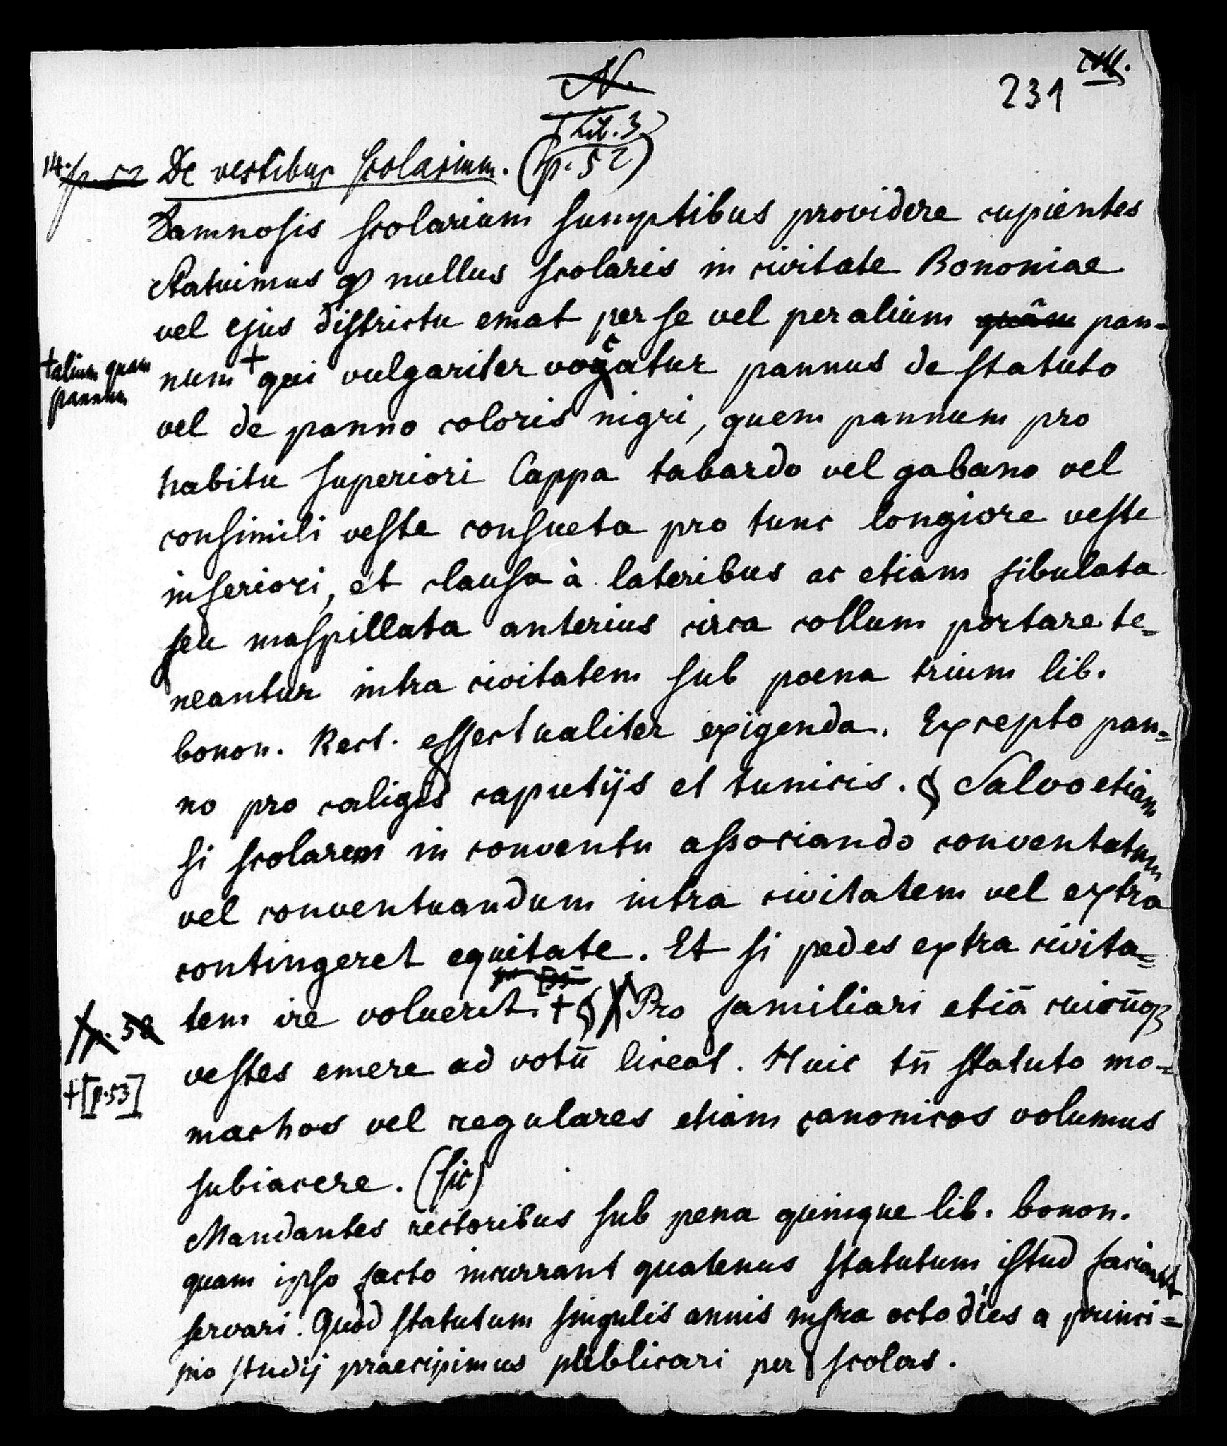 N.
Lib. 3
231
14. p. 52 De vestibus scolarium. (p. 52)
Damnosis scolarium sumptibus providere cupientes
statuimus q nullus scolaris in civitate Bononiae
vel ejus districtu emat per se vel per alium quâm pan=
num + qui vulgariter vocatur pannus de statuto
+ alium quam
pannum
vel de panno coloris nigri, quem pannum pro
habitu superiori Cappa tabardo vel gabano vel
consimili veste consueta pro tunc longiore veste
inferiori, et clausa à lateribus ac etiam fibulata
seu maspillata anterius circa collum portare te=
neantur intra civitatem sub poena trium lib.
bonon. Rect. effectualiter exigenda. Excepto pan=
no pro caligis caputijs et tunicis. Salvo etiam
si scolarem in conventu associando conventatum
vel conventuandum intra civitatem vel extra
contingeret equitate. Et si pedes extra civita=
tem ire voluerit. + Pro familiari etiā cuicūq
p. 52
+ [p. 53]
vestes emere ad votū liceat. Huic tn̄ statuto mo=
machos vel regulares etiam canonicos volumus
subiacere. (sic)
Mandantes rectoribus sub pena quinque lib. bonon.
quam ipso facto incurrant quatenus statutum istud faciant
servari. Quod statutum singulis annis infra octo dies a princi=
pio studij praecipimus publicari per scolas.